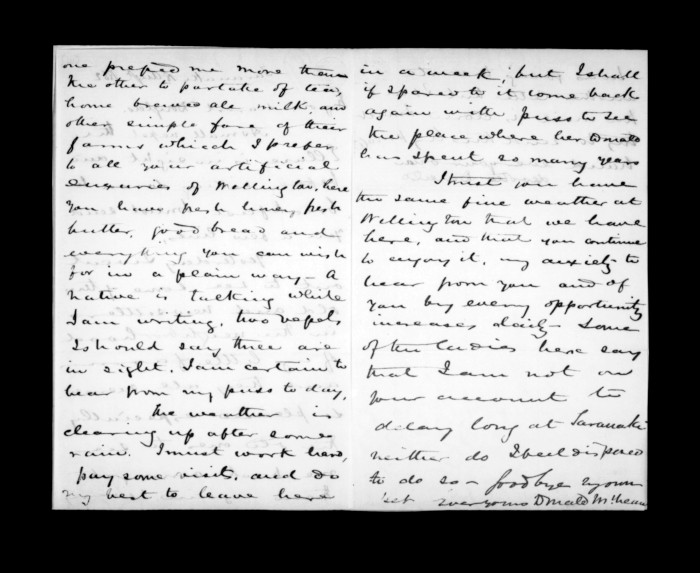 one prefered me more than
the other to partake of tea,
home brewed ale milk, and
other simple fare of their
farms which I prefer
to all your artificial
luxuries of Wellington, here
you have fresh honey, fresh
butter, good bread and
everything you can wish
for in a plain way - A
native is talking while
I am writing, two vessels
I should say three are
in sight. I am certain to
hear from my puss to day,
The weather is
clearing up after some
rain. I must work hard,
pay some visits, and do
my best to leave here
in a week, but I shall
if spared to it come back
again with puss to see
the place where her Donald
has spent so many years
I trust you have
the same fine weather at
Wellington that we have
here, and that you continue
to enjoy it, my anxiety to
hear from you and of
you by every opportunity
increases daily - Some
of the ladies here say
that I am not on
your account to
delay long at Taranaki
neither do I feel disposed
to do so - Goodbye my own
pet ever yours Donald McLean